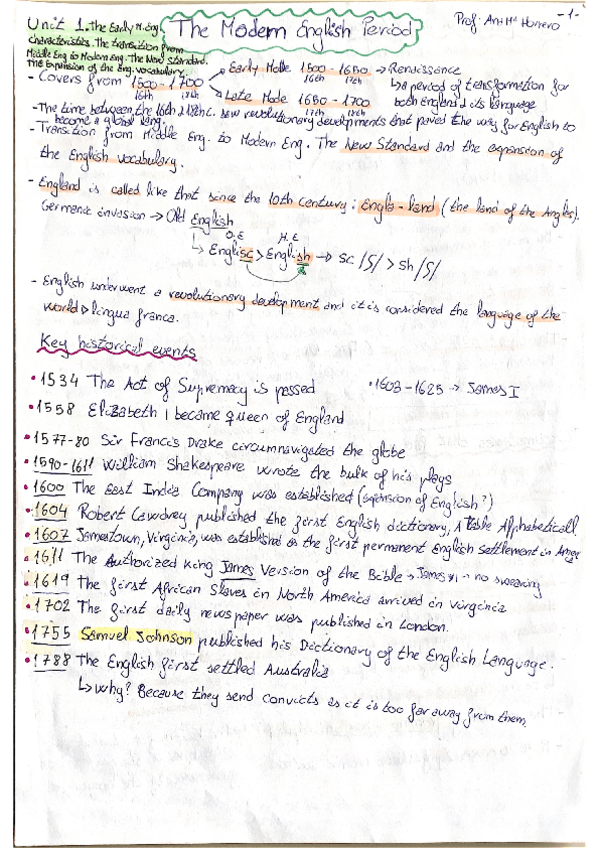 Unit 1. The Early M. Eng.
characteristics. The transition from
Middle Eng to Modern Eng. The New Standard.
The Expansion of the Eng. vocabulary.
The Modern English Period
Prof. Ana Mª Hornero
-1-
- Covers from 1500 - 1700
16th 18th
Early Mode 1500 - 1650 → Renaissance
16th 17th
↳ a period of transformation for
both england & its language
Late Mode 1650 - 1700
17th 18th
- The time between the 16th & 18th c. saw revolutionary developments that paved the way for English to
become a global lang.
- Transition from Middle Eng. to Modern Eng. The New Standard and the expansion of
the English vocabulary.
- England is called like that since the 10th century: Engla-land (the land of the Angles).
Germanic invasion → Old English
O.E M.E
↳ Englisc > English → sc /ʃ/ > sh /ʃ/
- English underwent a revolutionary development and it is considered the language of the
world > lingua franca.
Key historical events
• 1534 The Act of Supremacy is passed
• 1603 - 1625 → James I
• 1558 Elizabeth I became queen of England
• 1577-80 Sir Francis Drake circumnavigated the globe
• 1590-1611 William Shakespeare wrote the bulk of his plays
• 1600 The East India Company was established (expansion of English?)
• 1604 Robert Cawdrey published the first English dictionary, A Table Alphabeticall
• 1607 Jamestown, Virginia, was established as the first permanent English Settlement in Amer
• 1611 The Authorized King James Version of the Bible → James - no swearing
• 1619 The first African Slaves in North America arrived in Virginia
• 1702 The first daily newspaper was published in London.
• 1755 Samuel Johnson published his Dictionary of the English Language.
• 1788 The English first settled Australia
↳ why? Because they send convicts as it is too far away from them.